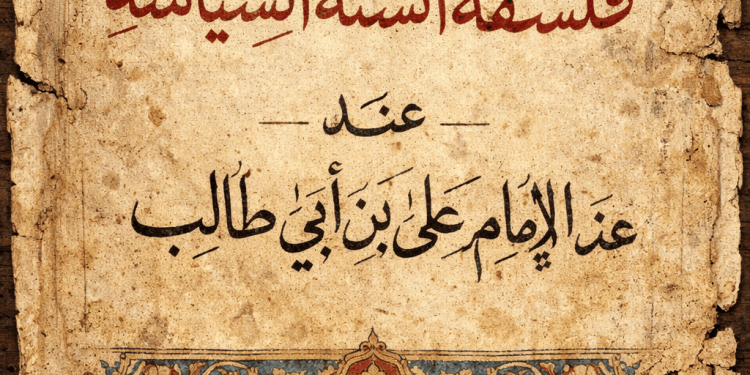 فلسفة السنة السياسية
— عنَد —
عذَ الإِمَامِ عَلىٰ بَنِ أَبَي طَالِب